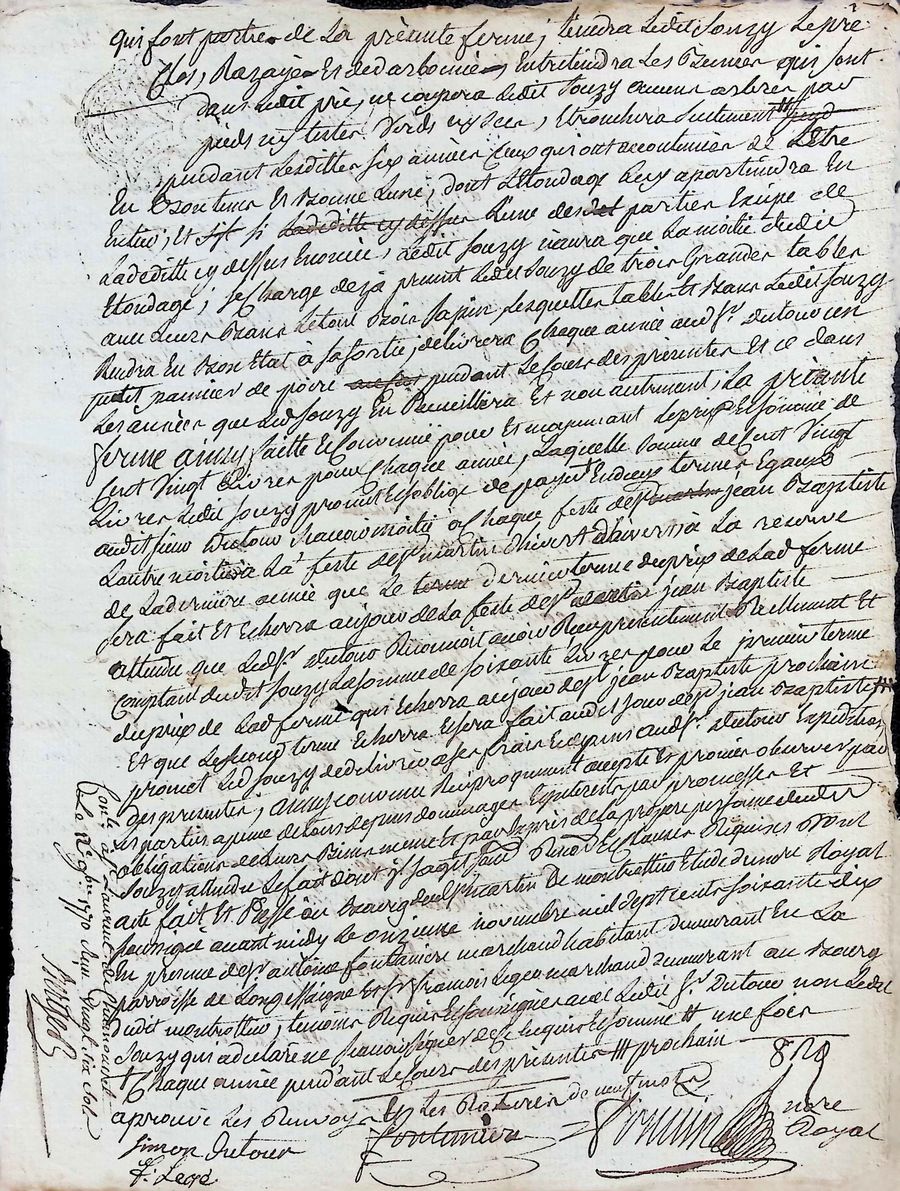 qui font partie de La présente ferme; tiendra Ledit Souzy Le pré
Clos, Razayé Et de darbonniè, Entretiendra Les Biemes qui sont
dans Ledit pré, ne coupera Ledit Souzy aucuns arbres par
pieds ny testes Verds ny Secs, Et tronchera Seulement #
pendant Lesdittes Six années Ceux qui ont accoutumier de L'Etre
En Bon tems Et Bonne Lune, dont L'Etondage Luy apartiendra En
Entier, Et si Ladeditte cy dessus L'une des parties Exipe de
Ladeditte cy dessus Enoncée, Ledit Souzy n'aura que La moitié dudit
Etondage; se Charge de jà present Ledit Souzy de trois Grandes tables
avec Leurs Bancs Le tout Bois Sapin, Lesquelles tables Et Bancs Ledit Souzy
Rendra En Bon Etat à sa sortie; delivrera Chaque année aud Sr. Dutour un
petit pannier de poire pendant Le Cours des présentes Et ce dans
Les années que Led Souzy En Recueillera Et non autrement, La présente
ferme ainsy faitte Et Convenuë pour Et moyennant Le prix Et Somme de
Cent Vingt Livres pour Chaque année, Laquelle Somme de Cent Vingt
Livres Ledit Souzy promet Et s'oblige de payer En deux termes Egaux
audit sieur Dutour Scavoir moitié à Chaque feste de St jean Baptiste
L'autre moitié à La feste de St martin d'hivert à La reserve
de La derniere année que Le dernier terme du prix de Lad ferme
sera fait Et Echerra au jour de La feste de St jean Baptiste
attendu que Led Sr. Dutour Reconnoit avoir Reçu presentement Reellement Et
Comptant dudit Souzy La somme de Soixante Livres pour Le premier terme
du prix de Lad ferme qui Echerra au jour de St jean Baptiste prochain
Et que Le second terme Echerra Et sera fait audit jour de St jean Baptiste #
promet Led Souzy de delivrer a ses frais Et depens aud Sr. Dutour Expédition
des presentes; ainsy convenu Reciproquement accepté Et promis observer par
les parties a peine de tous depens dommages Et interests par promesses Et
obligations de Leurs Biens meme Et par Exprés de La propre personne dudit
Souzy attendu Le fait dont il s'agit sauf Renon Et Clauses Requises Dont
acte fait Et Passé au Bourg de St martin De montrottier Etude du nore Royal
soussigné avant midy Le onzieme novembre mil sept cents soixante dix
En presence de Sr antoine fontaniere marchand habitant demeurant En La
parroisse de Longessaigne Et Sr françois Legeo marchand demeurant au Bourg
dudit montrottier, temoins Requis Et soussignés avec Ledit Sr. Dutour non Ledit
Souzy qui a declaré ne scavoir signer de ce Enquis Et sommé # une fois
† Chaque année pendant Le Cours des presentes ## prochain
aprouvé Les Renvoys Et Les Ratures de neuf mots
Simon Dutour
fontaniere
nore
Royal
f. Legeo
Conlé a St Laurent de Chamousset
Le 12 9bre 1770 Reçu Vingt six Sols